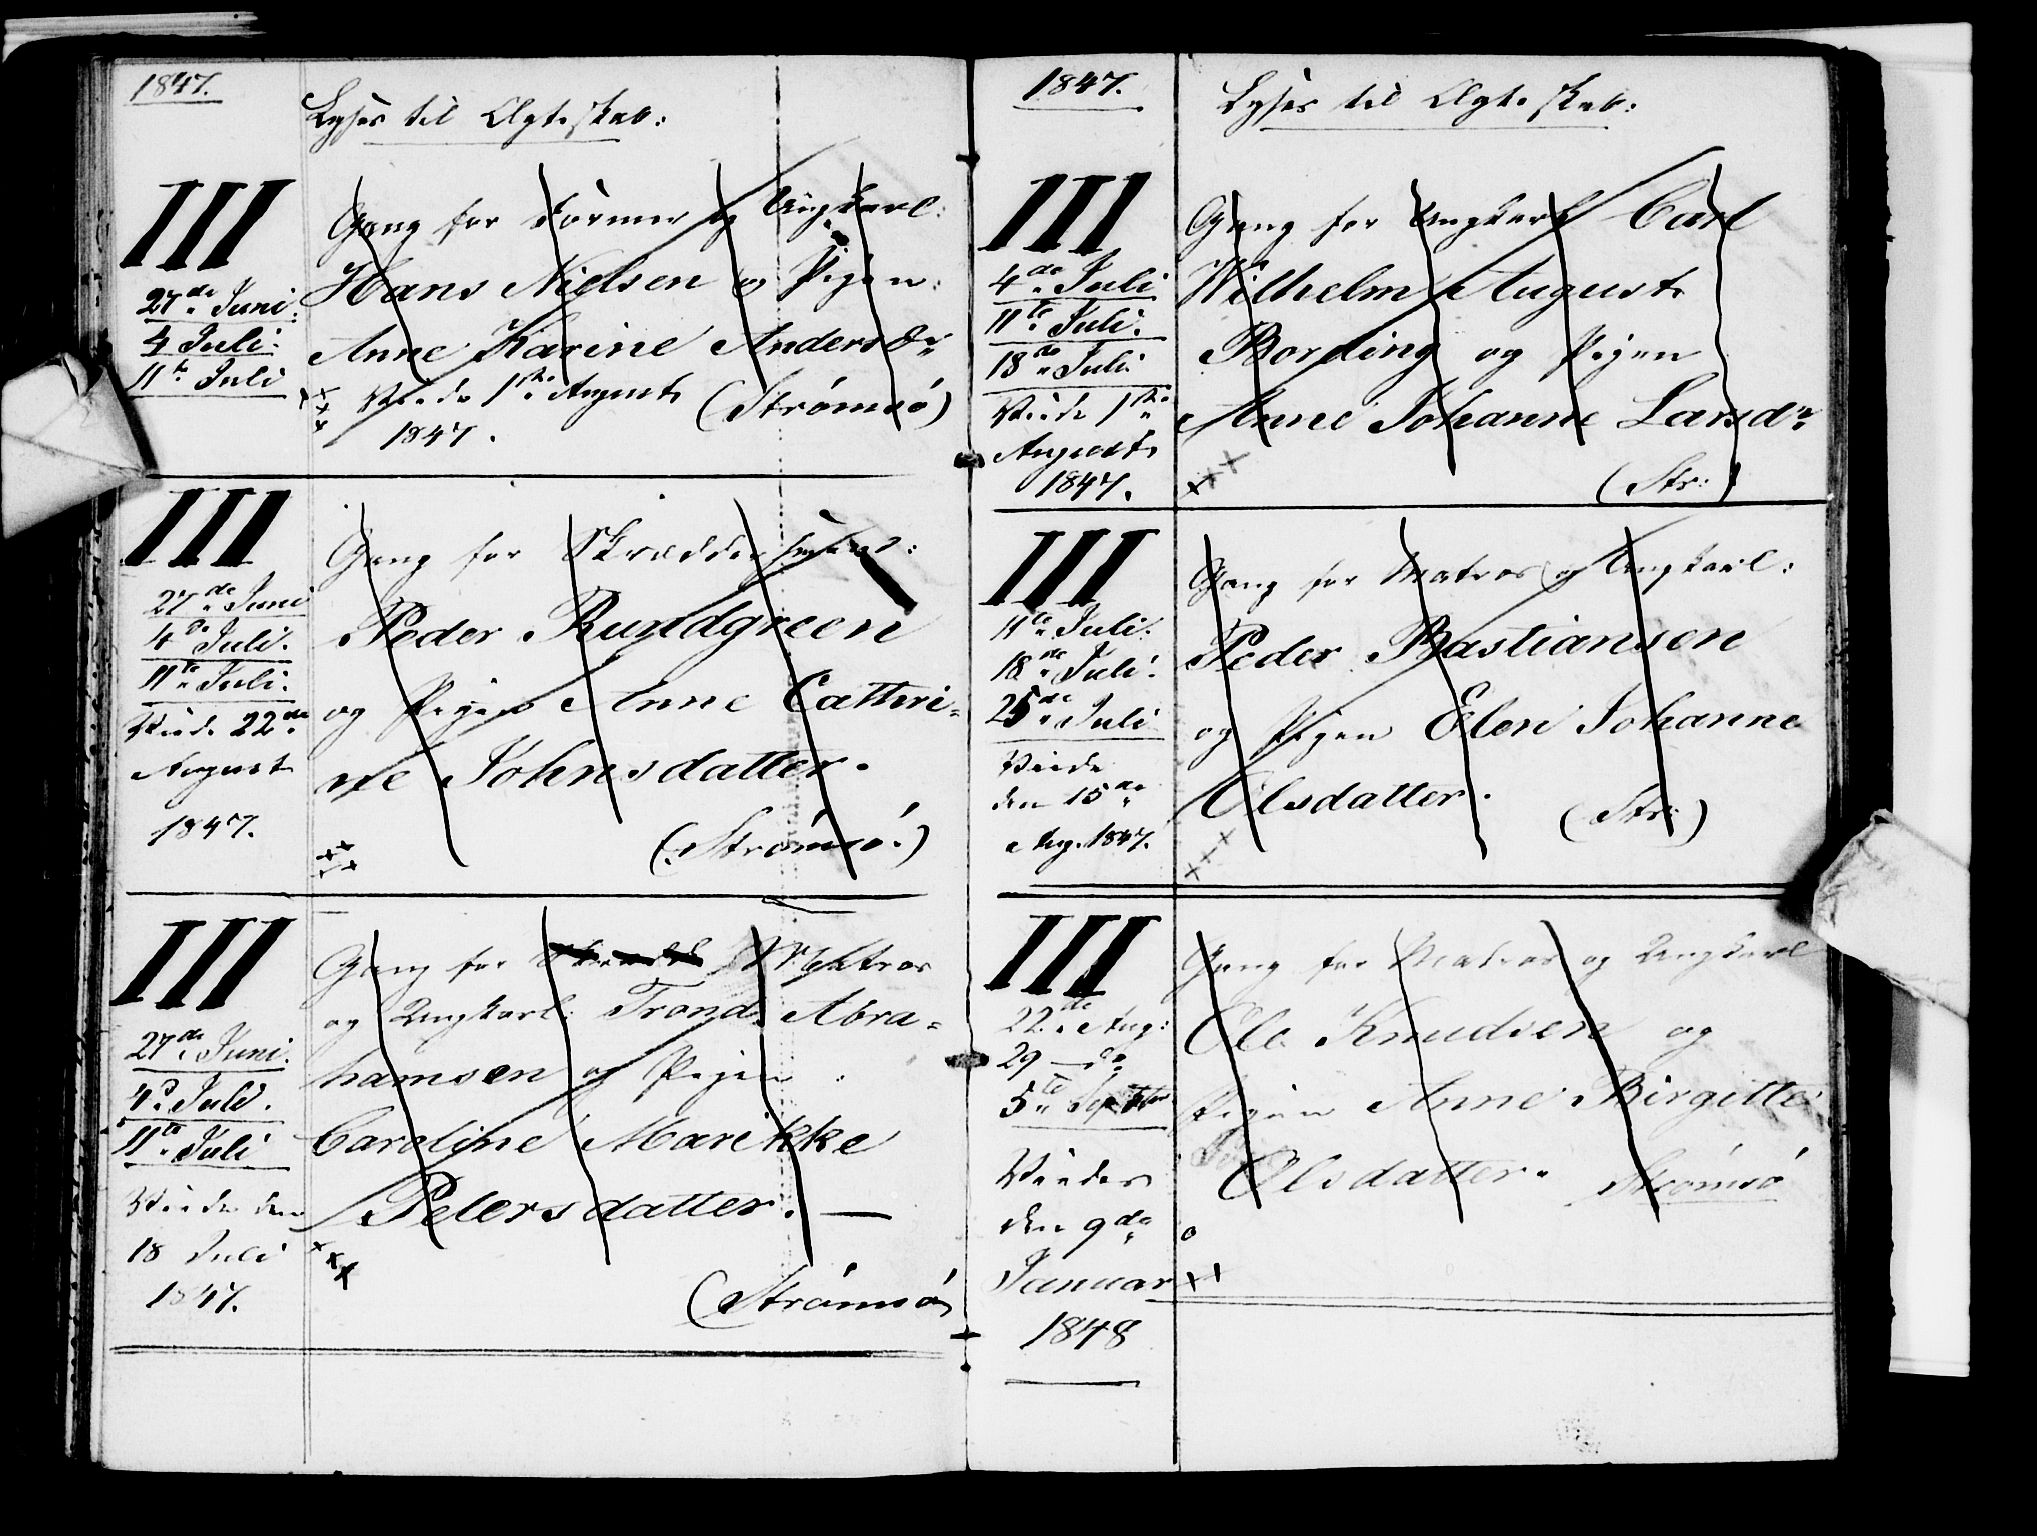 1847.
Lyses til Ægteskab:
III
27de Juni.
4 Juli.
11te Juli
Gang for og Ungkarl:
Hans Nielsen og Pigen:
Anne Karine Andersdr
Viede 1ste August (Strømsö)
1847.
III
27de Juni
4de Juli.
11te Juli.
Viede 22de
August
1847.
Gang for Skrædder
Peder Rundgreen
og Pigen Anne Cathri=
ne Johnsdatter.
(Strömsö.)
III
27de Juni.
4d Juli.
11te Juli
Viede den
18 Juli
1847.
Gang for Matros
og Ungkarl: Trond Abra=
hamsen og Pigen:
Caroline Marikke
Petersdatter. —
(Strömsö)
1847.
Lyses til Ægteskab:
III
4de Juli
11te Juli.
18de Juli.
Viede 1ste
August
1847.
Gang for Ungkarl Carl
Wilhelm August
Bording og Pigen
Anne Johanne Larsdr
(Str:)
III
11te Juli.
18de Juli.
25de Juli
Viede
den 15de
Aug. 1847.
Gang for Matros og Ungkarl:
Peder Bastiansen
og Pigen Elen Johanne
Olsdatter.
(Str:)
III
22de Aug:
29 — do
5te Septbr
Viedes
den 9de
Januar
1848
Gang for Matros og Ungkarl
Ole Knudsen og
Pigen Anne Birgitte
Olsdatter. Strömsö